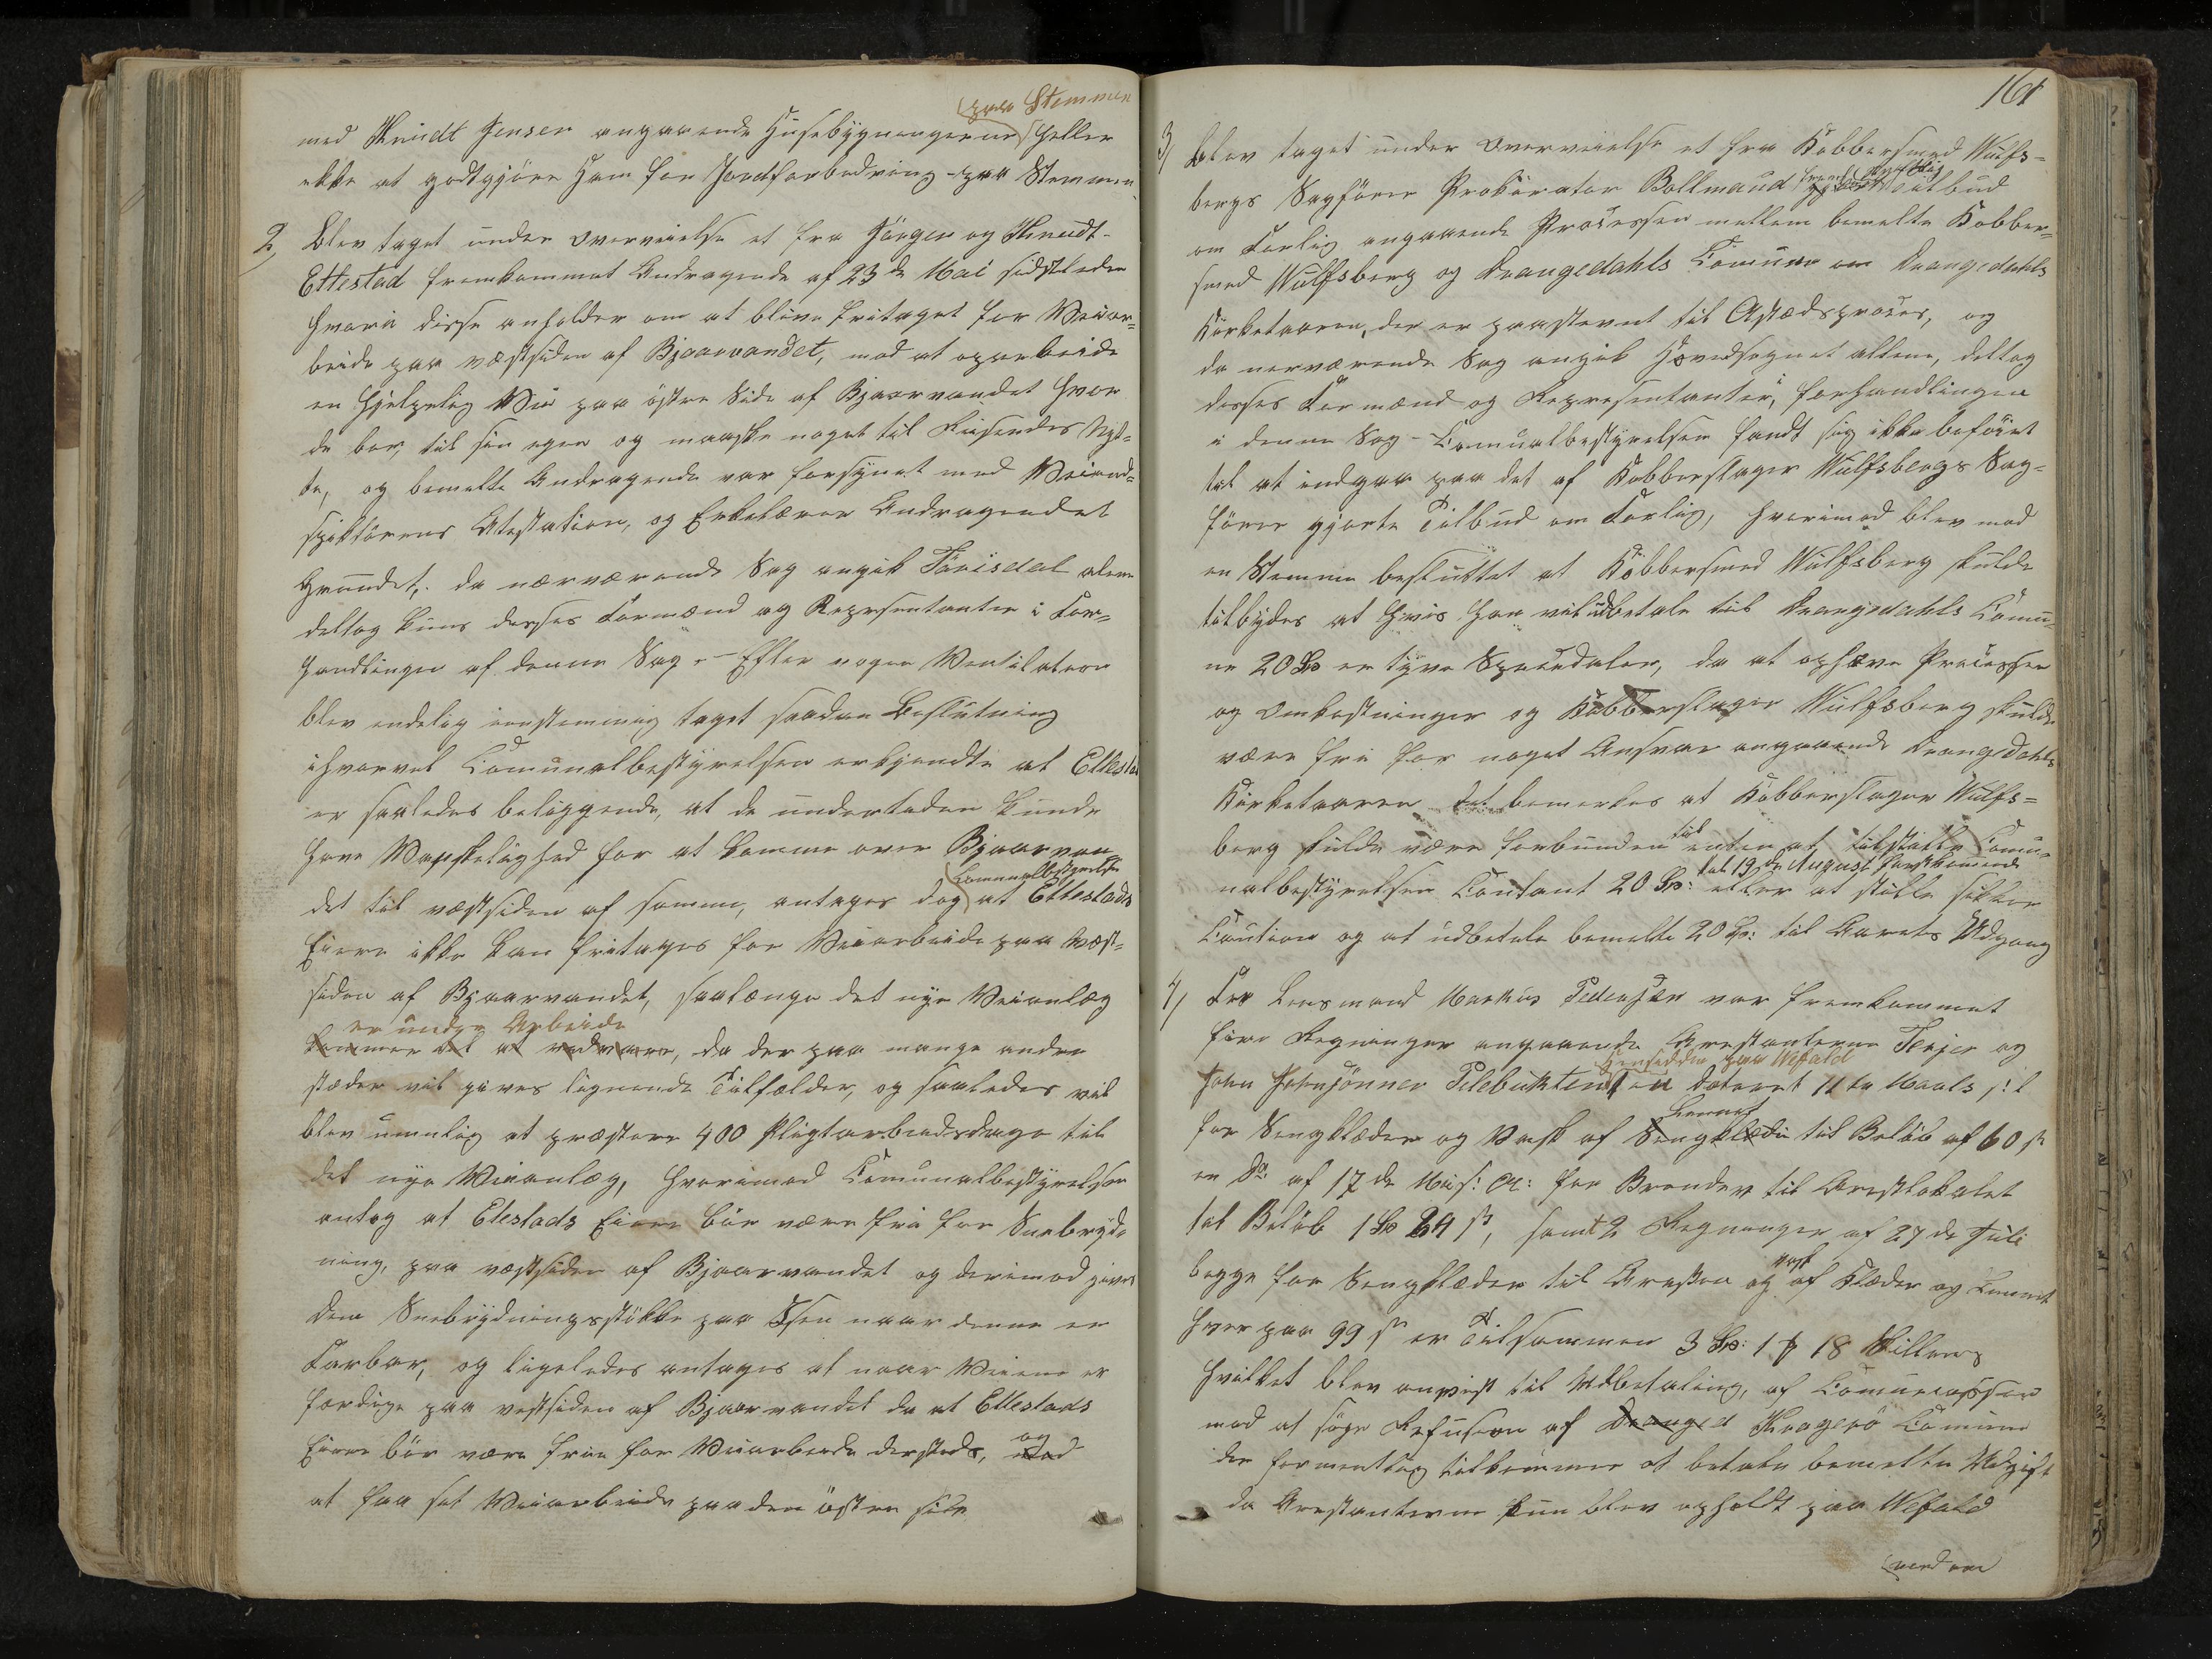 (paa Stemmen
med Knudt Jensen angaaende Husebygningerne heller
ikke at godtgjöre Ham for Jordforbedring paa Stemmen
2, Blev taget under Overveielse et fra Jörgen og Knudt
Ettestad fremkommet Andragende af 23de Mai sidstleden
hvori disse anholder om at blive fritaget for Veiar=
beide paa vestsiden af Bjaarvandet, mod at oparbeide
en hjelpelig Vei paa östre Side af Bjaarvandet hvor
de bor, til sin egen og maaske noget til Reisendes Nyt=
te, og bemelte Andragende var forsynet med Veiind=
spektörens Atestation, og Erklærer Andragendet
Grundet, da nærværende Sag angik Töirsdal alene
deltog kuns desses Formænd og Representanter i For=
handlingen af denne Sag. - Efter nogen Ventilation
blev endelig eenstemmig taget saadan Beslutning
ihvorvel Comunalbestyrelsen erkjendte at Ettestad
er saaledes beliggende, at de undertiden kunde
have Vanskelighed for at komme over Bjaarvan
(Comunalbestyrelsen
det til vestsiden af samme, antages dog at Ettestads
Eiere ikke kan fritages for Veiarbeide paa Vest=
siden af Bjaarvandet, saalænge det nye Veianlæg
er under Arbeide
kommer til at vedvare, da der paa mange andre
stæder vil gives lignende Tilfælder, og saaledes vil
blev umulig at præstere 400 Pligtarbeidsdage til
det nye Veianlæg, hvorimod Comunalbestyrelsen
antog at Etestads Eiere bör være fri for Snebryd=
ning, paa vestsiden af Bjaarvandet og derimod gives
dem Snebrydningsstökke paa Isen naar denne er
Farbar, og ligeledes antages at naar Veiene er
færdige paa vestsiden af Bjaarvandet da at Ettestads
Eiere bör være frie for Veiarbeide dersteds, og
at faa sit Veiarbeide paa den östre side
161
3, Blev taget under Overveielse et fra Kobbersmed Wulfs=
bergs Sagförer Prokurator Bollmaud Tilbud
om Forlig angaaende Processen mellem bemelte Kobber=
smed Wulfsberg og Drangedahls Comune om Drangedahls
Kirketaaren, der er paastevnt til Astædsproces, og
da nerværende Sag angik Hovedsognet allene, deltog
desses Formænd og Representanter, forhandlingen
i denne Sag - Comunalbestyrelsen fandt sig ikke beföiet
til at indgaa paa det af Kobberslager Wulfsbergs Sag=
förer gjorte Tilbud om Forlig, hvorimod blev med
en Stemme besluttet at Kobbersmed Wulfsberg skulde
tilbydes at hvis han vil udbetale til Drangedahls Comu=
ne 20 Sp er tyve Speciedaler, da at ophæve Processen
og Omkostninger og Kobberslager Wulfsberg skulde
være fri for noget Ansvar angaaende Drangedahls
Kirketaaren det bemerkes at Kobberslager Wulfs=
til
berg skulde være forbunden enten at tilstille Comu=
til 19de August förstkomende
nalbestyrelsen Contant 20 Sp: eller at stille sikker
Caution og at udbetale bemelte 20 Sp: til Aarets Udgang
4, Fra Lensmand Markus Pedersen var fremkommet
fire Regninger angaaende Arrestanterne Terjer og
Hensidden paa Wefald
John Johnsönner Pelebukten en dateret 11te Marts s: l
Linnet
for Sengklæder og Vask af Sengklæde til Belöb af 60 s
en Do af 17de for Brendev til Arestlokalet
til Belöb 1 Sp 24 s, samt 2 Regninger af 27de Juli
vask
begge for Sengklæder til Aresten og af Klæder og Linnet
hver paa 99 s er Tilsammen 3 Sp: 1 18 Skillings
hvilket blev anvist til Udbetaling, af Comunecassen
mod at söge Refusion af Dranged Kragerö Comune
der formentlig tilkommer at betale bemelte Udgift
da Arestanterne kun blev opholdt paa Wefald
(vend om